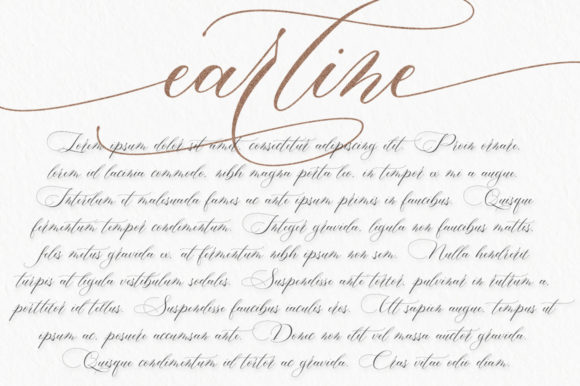 earline
Lorem ipsum dolor sit amet, consectetur adipiscing elit. Proin ornare,
lorem id lacinia commodo, nibh magna porta leo, in tempor ex mi a augue.
Interdum et malesuada fames ac ante ipsum primis in faucibus. Quisque
fermentum tempor condimentum. Integer gravida, ligula non faucibus mattis,
felis metus gravida ex, at fermentum nibh ipsum non sem. Nulla hendrerit
turpis at ligula vestibulum sodales. Suspendisse ante tortor, pulvinar in rutrum a,
porttitor id tellus. Suspendisse faucibus iaculis eros. Ut sapien augue, tempus ut
ipsum ac, posuere accumsan ante. Donec non elit vel massa auctor gravida.
Quisque condimentum id tortor ac gravida. Cras vitae odio diam.